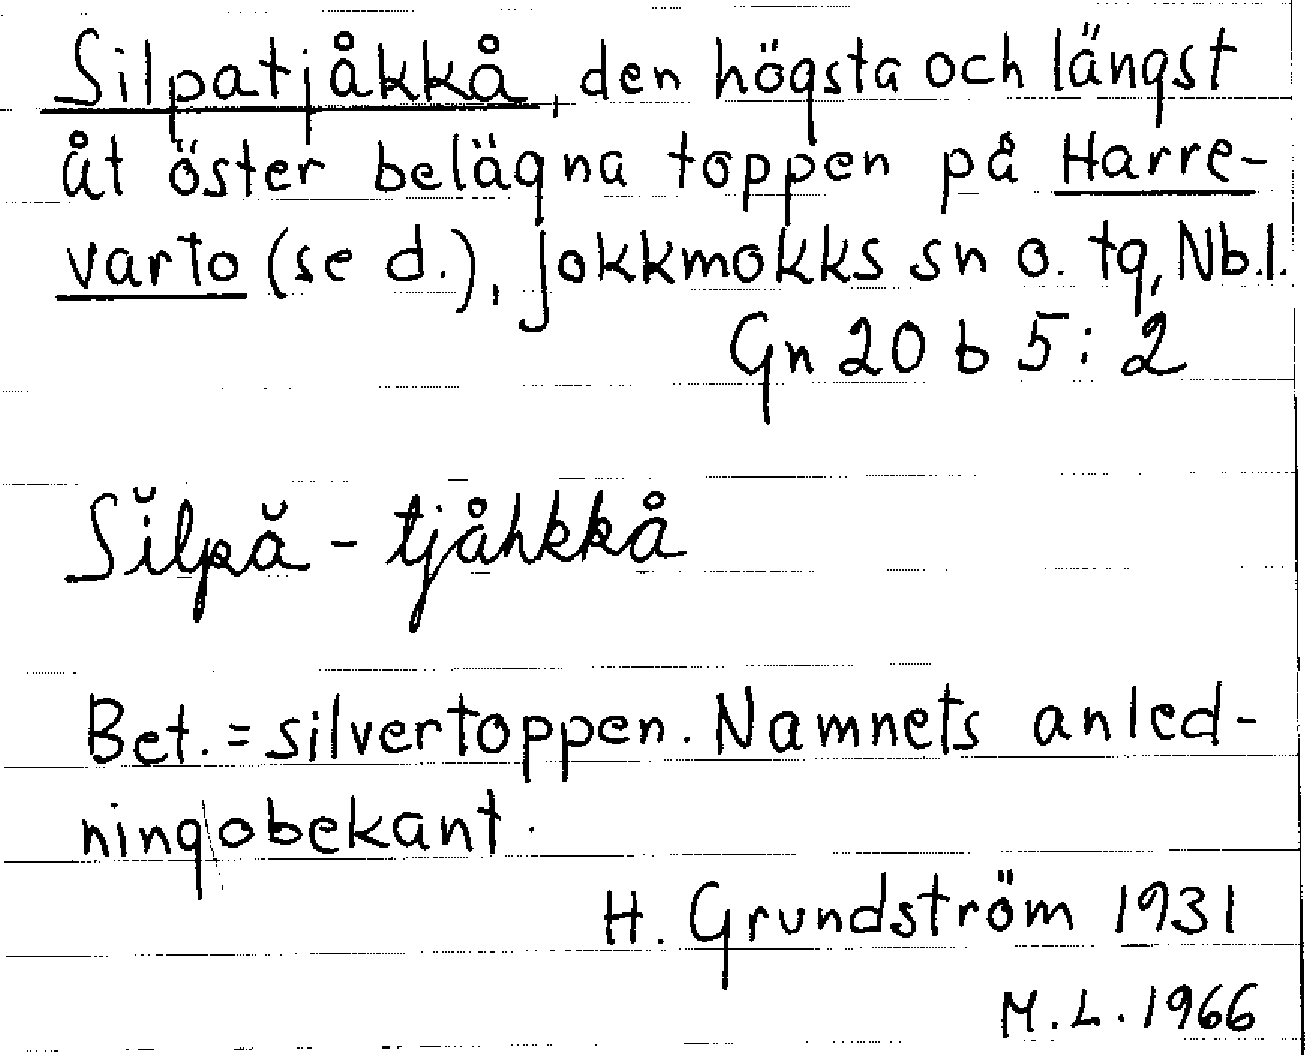 Silpatjåkkå, den högsta och längst
åt öster belägna toppen på Harre-
varto (se d.), Jokkmokks sn o. tg, Nb.l.
Gn 20 b 5:2
Sĭlpă - tjåhkkå
Bet. = silvertoppen. Namnets anled-
ning|obekant.
H. Grundström 1931
M.L. 1966